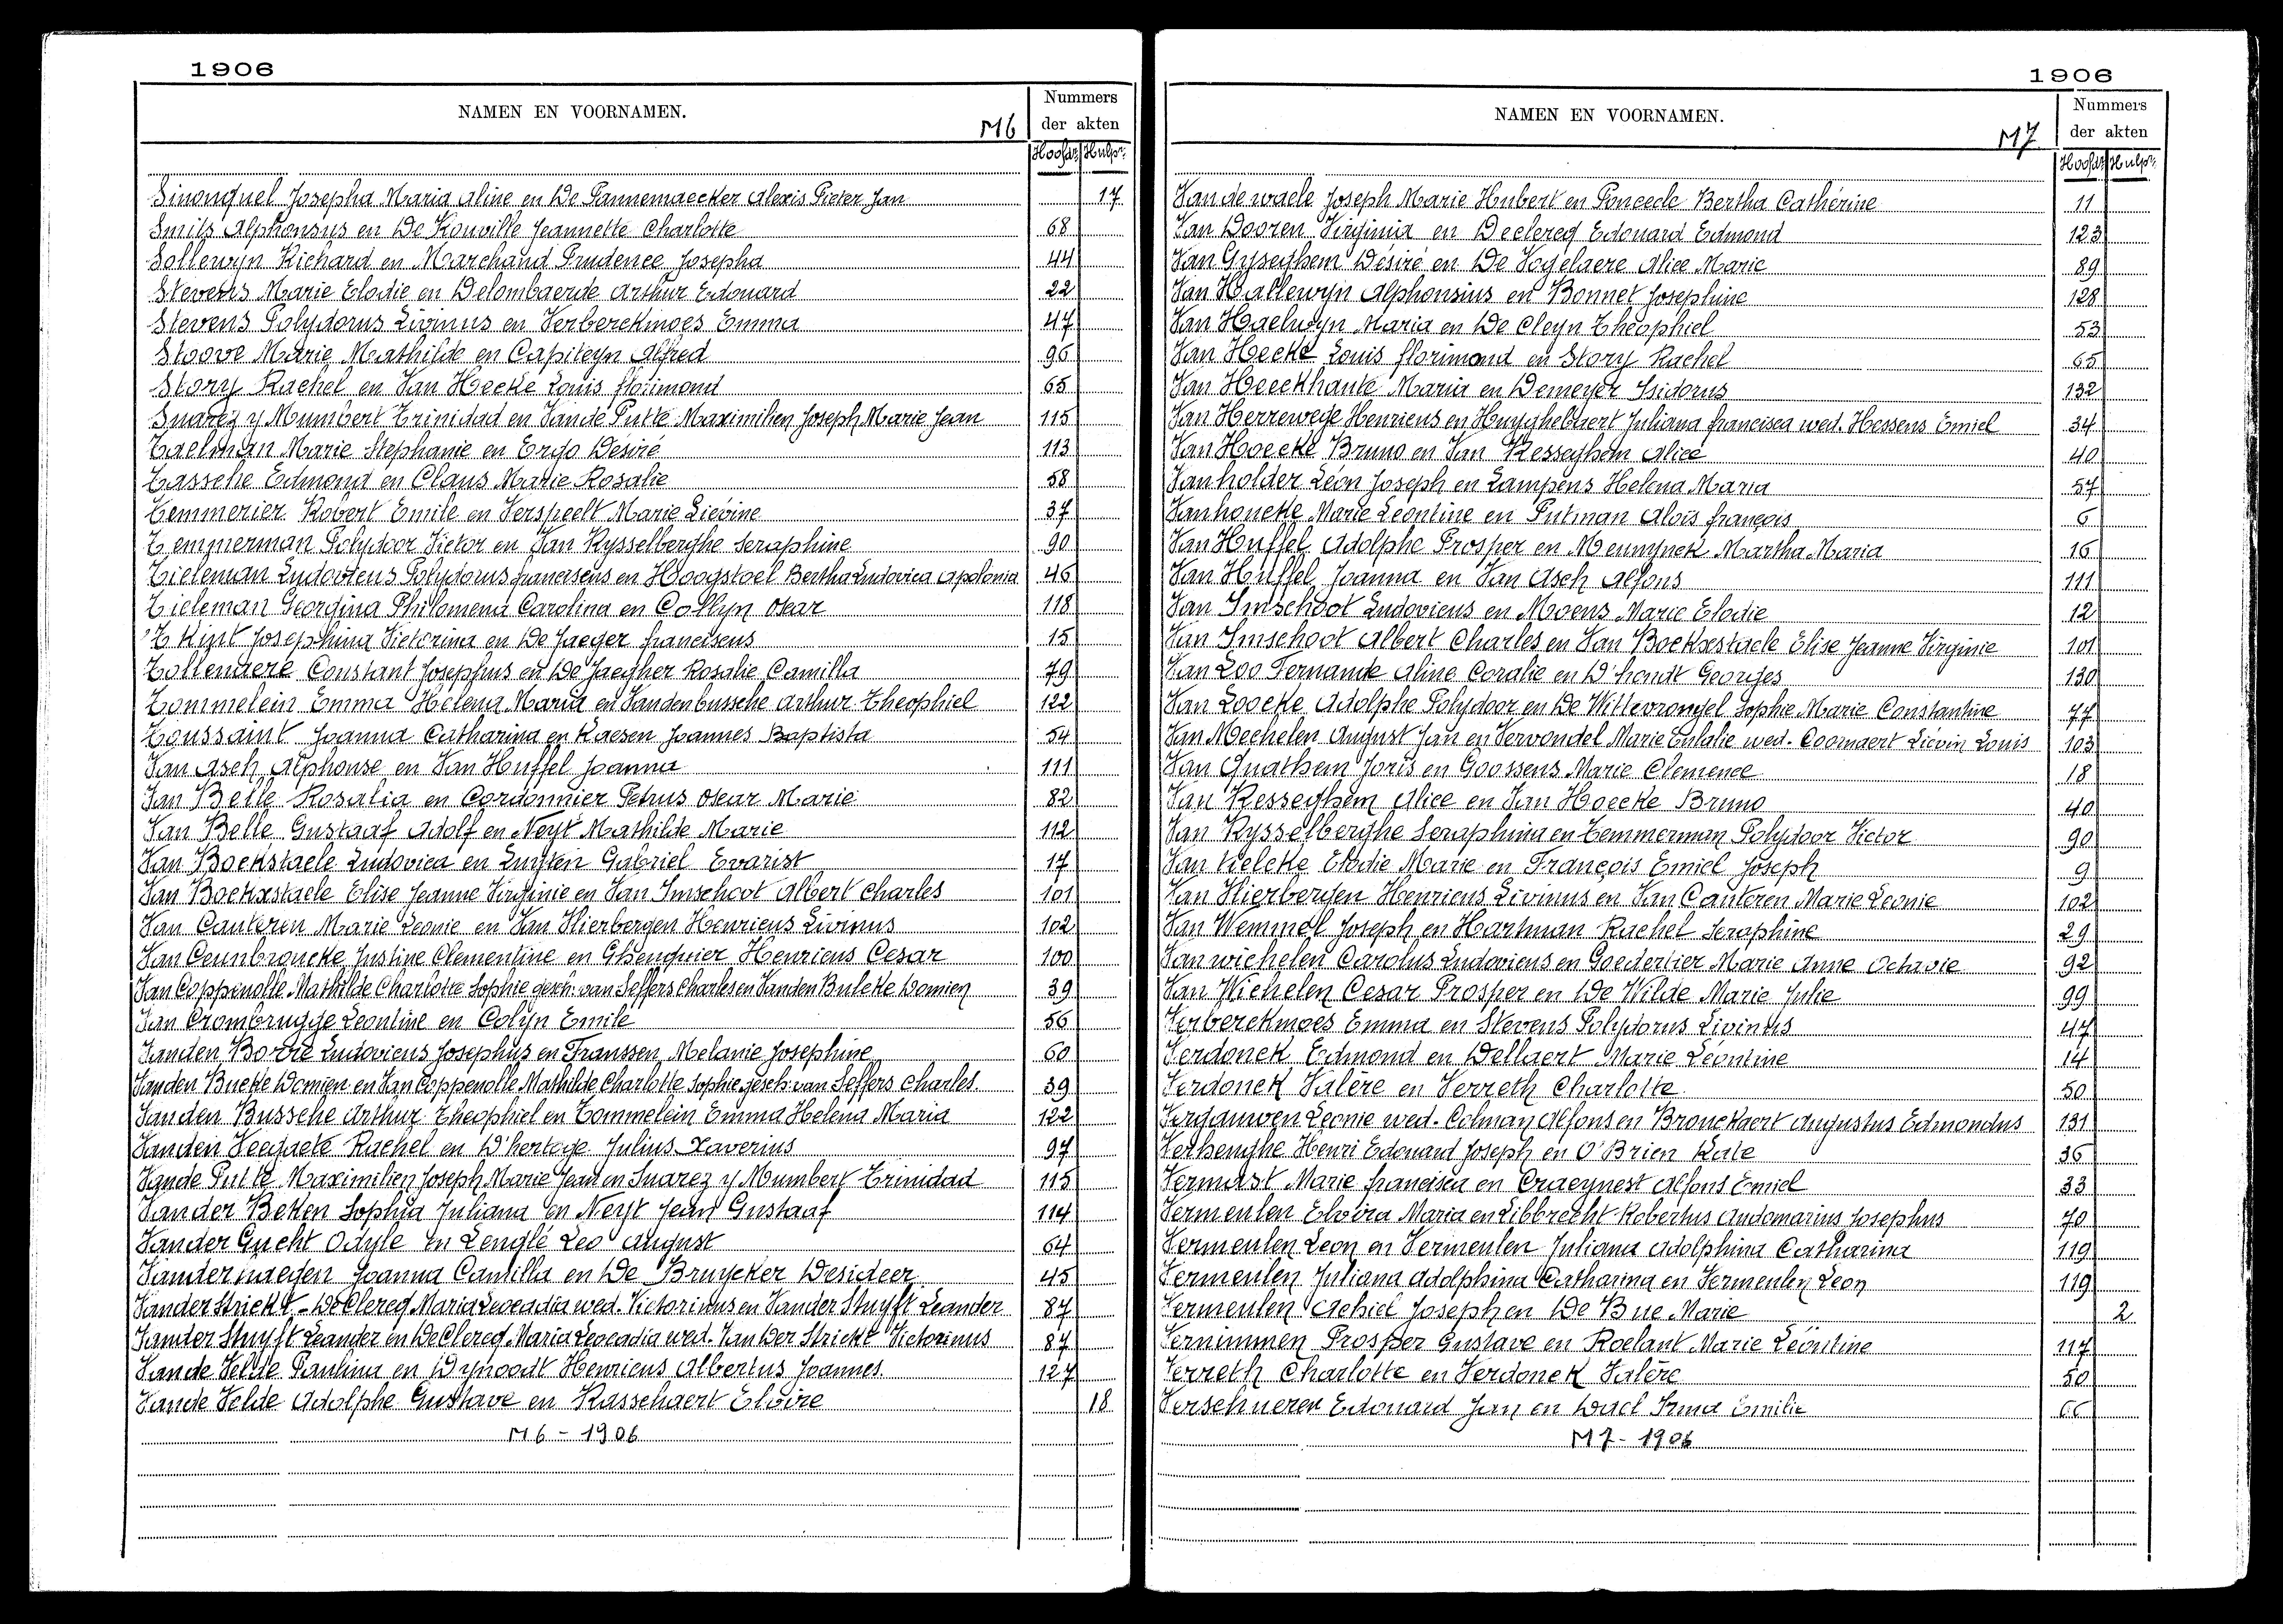 1906
NAMEN EN VOORNAMEN.
M6
Nummers
der akten
Hoofdr: Hulpr:
Sinonquel Josepha Maria Aline en De Pannemaecker Alexis Pieter Jan 17
Smits Alphonsus en De Konville Jeannette Charlotte 68
Sollewyn Richard en Marchand Prudence Josepha 44
Stevens Marie Elodie en Delombaerde Arthur Edouard 22
Stevens Polydorus Livinus en Verberckmoes Emma 47
Stoove Marie Mathilde en Capiteyn Alfred 96
Story Rachel en Van Hecke Louis florimond 65
Suarez y Mumbert Trinidad en Van de Putte Maximilien Joseph Marie Jean 115
Taelman Marie Stephanie en Ergo Désiré 113
Tassche Edmond en Claus Marie Rosalie 58
Temmerier Robert Emile en Verspeelt Marie Liévine 37
Temmerman Polydoor Victor en Van Rysselberghe Seraphine 90
Tieleman Ludovicus Polydorus franciscus en Hoogstoel Bertha Ludovica Apolonia 46
Tieleman Georgina Philomena Carolina en Collyn Oscar 118
'T Kint Josephina Victorina en De Jaeger franciscus 15
Tollenaere Constant Josephus en De Jaegher Rosalie Camilla 79
Tommelein Emma Helena Maria en Vandenbussche Arthur Theophiel 122
Toussaint Joanna Catharina en Raesen Joannes Baptista 54
Van Asch Alphonse en Van Huffel Joanna 111
Van Belle Rosalia en Cordonnier Petrus Oscar Marie 82
Van Belle Gustaaf Adolf en Neyt Mathilde Marie 112
Van Bockstaele Ludovica en Luyten Gabriel Evarist 17
Van Bockxstaele Elise Jeanne Virginie en Van Imschoot Albert Charles 101
Van Cauteren Marie Leonie en Van Vlierbergen Henricus Livinus 102
Van Ceunbroucke Justine Clementine en Ghenquier Henricus Cesar 100
Van Coppenolle Mathilde Charlotte Sophie gesch: van Seffers Charles en Vanden Bulcke Domien 39
Van Crombrugge Leontine en Colyn Emile 56
Vanden Borre Ludovicus Josephus en Franssen Melanie Josephine 60
Vanden Bucke Domien en Van Coppenolle Mathilde Charlotte Sophie gesch: van Seffers Charles 39
Vanden Bussche Arthur Theophiel en Tommelein Emma Helena Maria 122
Vanden Veegaete Rachel en D'hertoge Julius Xaverius 97
Vande Putte Maximilien Joseph Marie Jean en Suarez y Mumbert Trinidad 115
Vander Beken Sophia Juliana en Neyt Jean Gustaaf 114
Vander Gucht Odyle en Lenglé Leo August 64
Vandermaegen Joanna Camilla en De Bruycker Desideer 45
Vander Strickt - De Clercq Maria Leocadia wed. Victorinus en Vander Stuyft Leander 87
Vander Stuyft Leander en De Clercq Maria Leocadia wed. Van Der Strickt Victorinus 87
Van de Velde Paulina en Dynoodt Henricus Albertus Joannes 127
Vande Velde Adolphe Gustave en Rasschaert Elvire 18
M6 - 1906
1906
NAMEN EN VOORNAMEN.
M7
Nummers
der akten
Hoofdr: Hulpr:
Van de waele Joseph Marie Hubert en Ponceele Bertha Cathérine 11
Van Dooren Virginia en Declercq Edouard Edmond 123
Van Gyseghem Désiré en De Vogelaere Alice Marie 89
Van Hallewyn Alphonsius en Bonnet Josephine 128
Van Haelwyn Maria en De Cleyn Théophiel 53
Van Hecke Louis florimond en Story Rachel 65
Van Heeckhaute Maria en Demeyer Isidorus 132
Van Herrewege Henricus en Huyghebaert Juliana francisca wed. Hessens Emiel 34
Van Hoecke Bruno en Van Resseghem Alice 40
Vanholder Léon Joseph en Lampens Helena Maria 57
Vanhoucke Marie Leontine en Putman Alois françois 6
Van Huffel Adolphe Prosper en Meunynck Martha Maria 16
Van Huffel Joanna en Van Asch Alfons 111
Van Imschoot Ludovicus en Moens Marie Elodie 12
Van Imschoot Albert Charles en Van Bockxstaele Elise Jeanne Virginie 101
Van Loo Fernande Aline Coralie en D'hondt Georges 130
Van Loocke Adolphe Polydoor en De Wittevrongel Sophie Marie Constantine 77
Van Mechelen August Jan en Vervondel Marie Eulalie wed. Coomaert Lievin Louis 103
Van Quathem Joris en Goossens Marie Clemence 18
Van Resseghem Alice en Van Hoecke Bruno 40
Van Rysselberghe Seraphina en Temmerman Polydoor Victor 90
Van Velcke Elodie Marie en François Emiel Joseph 9
Van Vlierbergen Henricus Livinus en Van Cauteren Marie Leonie 102
Van Wemmel Joseph en Hartman Rachel Seraphine 29
Van wichelen Carolus Ludovicus en Goedertier Marie Anne Octavie 92
Van Wichelen Cesar Prosper en De Wilde Marie Julie 99
Verberckmoes Emma en Stevens Polydorus Livinus 47
Verdonck Edmond en Dellaert Marie Léontine 14
Verdonck Valère en Verreth Charlotte 50
Vergauwen Leonie wed. Colman Alfons en Bronckaert Augustus Edmondus 131
Verhenghe Henri Edouard Joseph en O'Brien Kate 36
Vermast Marie francisca en Craeynest Alfons Emiel 33
Vermeulen Elvira Maria en Libbrecht Robertus Audomarius Josephus 70
Vermeulen Leon en Vermeulen Juliana Adolphina Catharina 119
Vermeulen Juliana Adolphina Catharina en Vermeulen Leon 119
Vermeulen Achiel Joseph en De Bue Marie 2
Vernimmen Prosper Gustave en Roelant Marie Léontine 117
Verreth Charlotte en Verdonck Valère 50
Verschueren Edouard Jan en Wael Irma Emilie 66
M7 - 1906